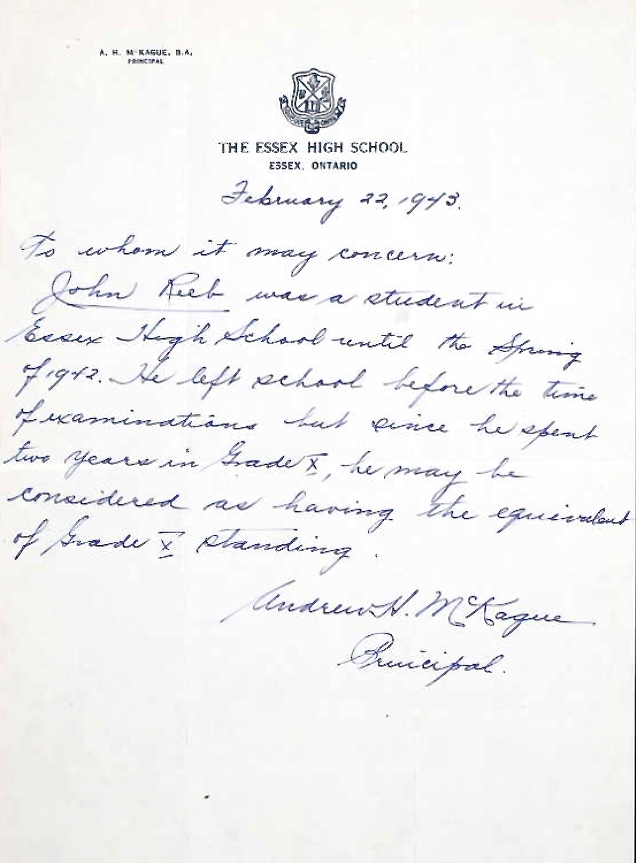 A. H. McKAGUE, B.A.
PRINCIPAL
THE ESSEX HIGH SCHOOL
ESSEX, ONTARIO
February 22, 1943.
To whom it may concern:
John Reeb was a student in
Essex High School until the Spring
of 1942. He left school before the time
of examinations but since he spent
two years in Grade X, he may be
considered as having the equivalent
of Grade X standing.
Andrew H. McKague
Principal.